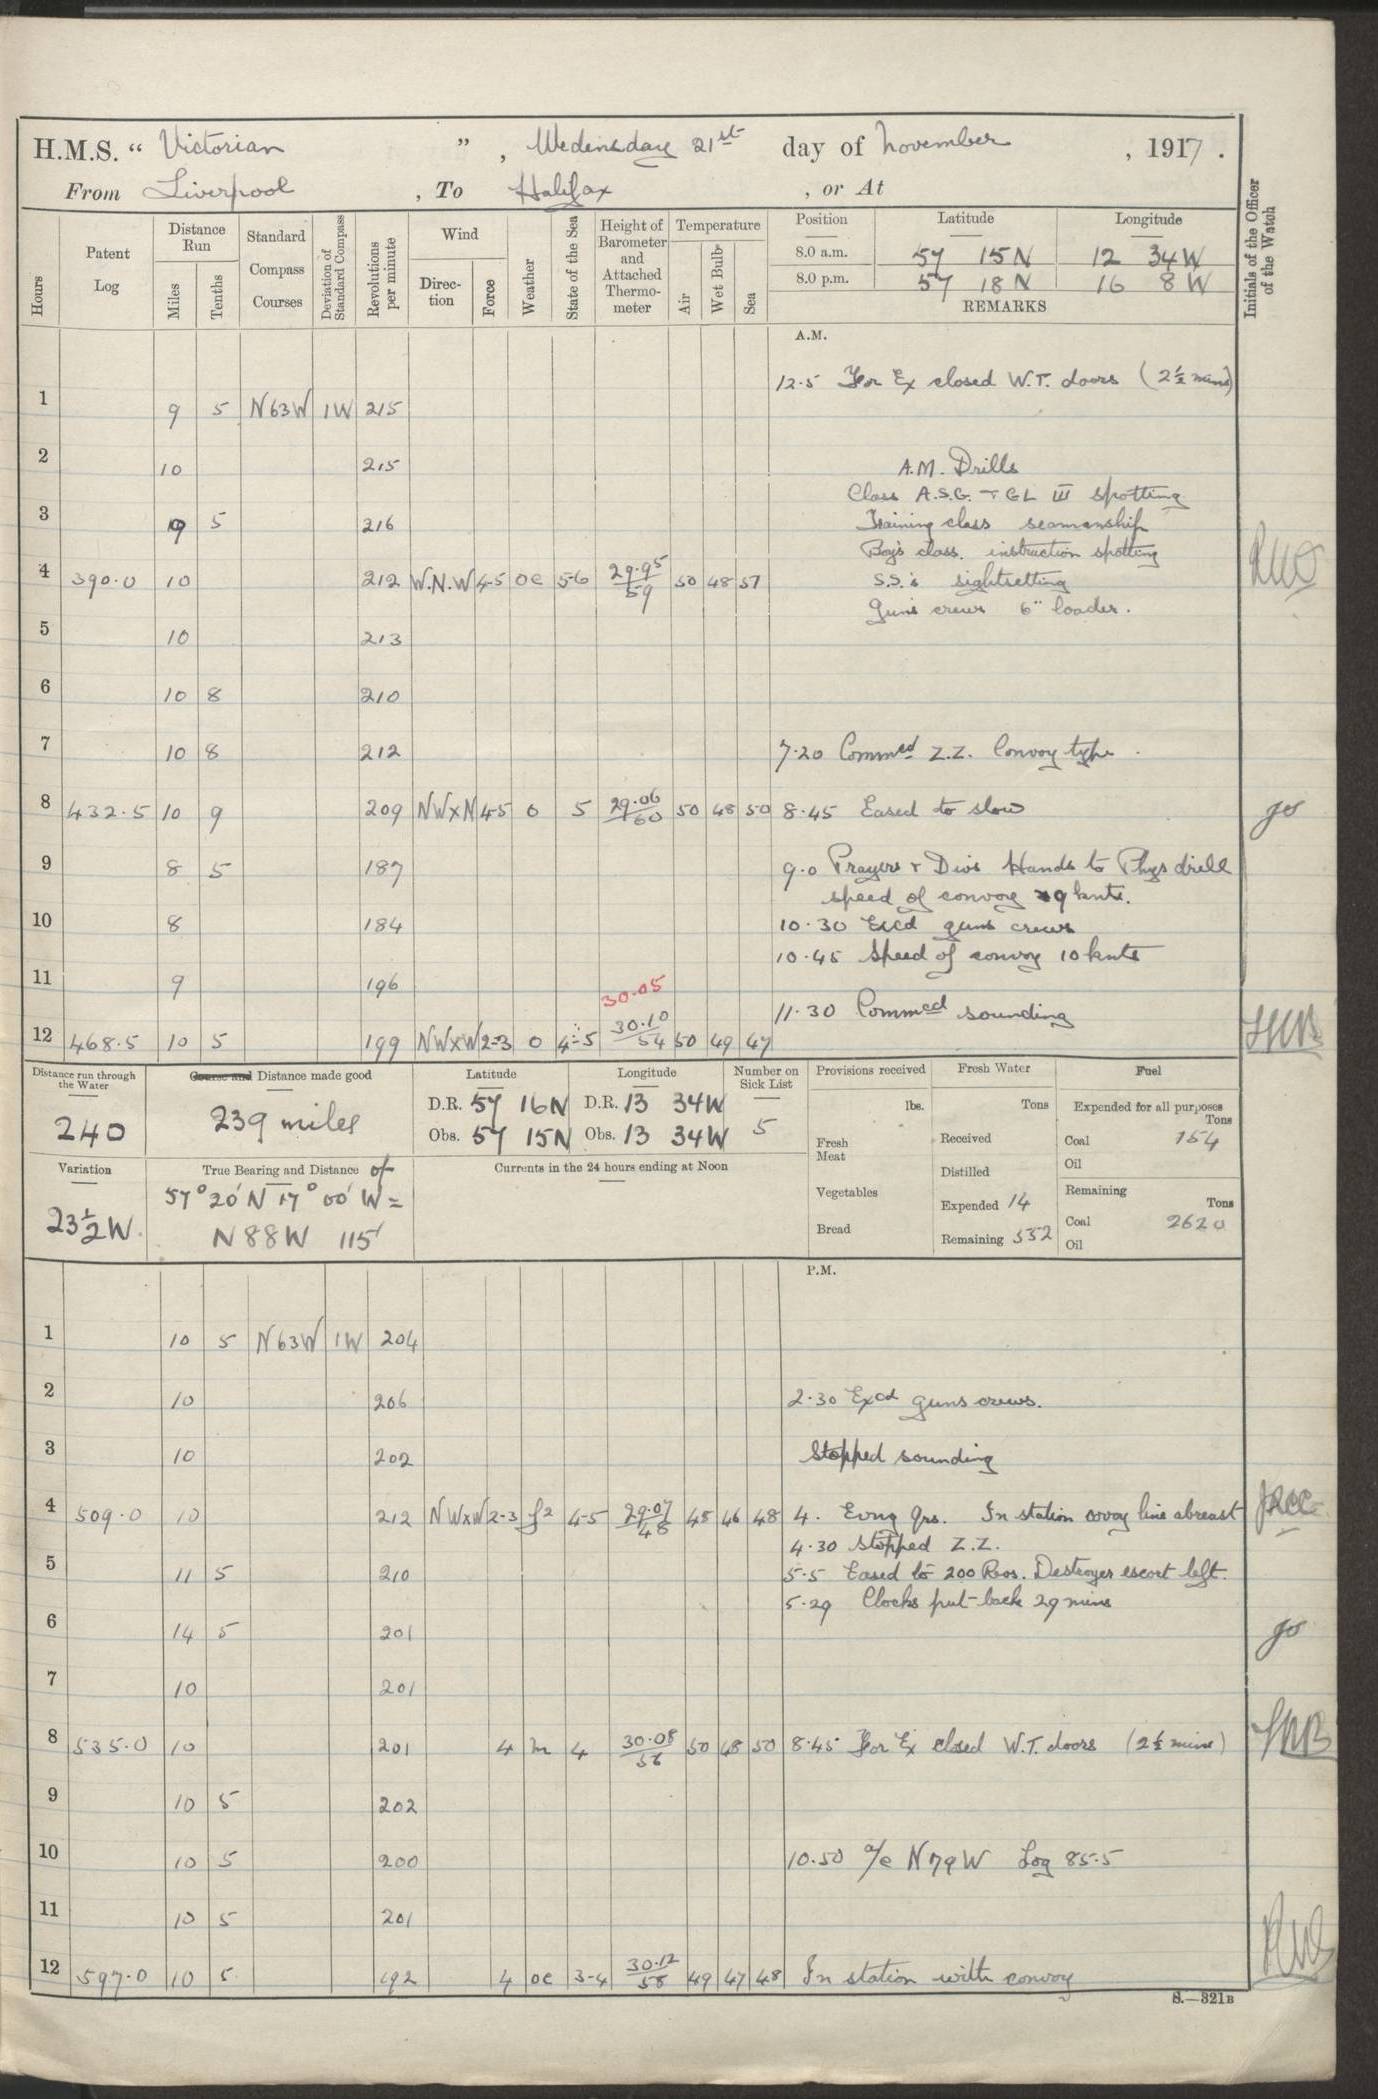 H.M.S. “ Victorian ”, Wedensday 21st day of November, 1917.
From Liverpool, To Halifax, or At
Hours
Patent Log
Distance Run
Miles
Tenths
Standard Compass Courses
Deviation of Standard Compass
Revolutions per minute
Wind
Direction
Force
Weather
State of the Sea
Height of Barometer and Attached Thermometer
Temperature
Air
Wet Bulb
Sea
Position Latitude Longitude
8.0 a.m. 57 15 N 12 34 W
8.0 p.m. 57 18 N 16 8 W
REMARKS
Initials of the Officer of the Watch
A.M.
12.5 For Ex closed W.T. doors (2½ mins)
1 9 5 N63W 1W 215
2 10 215 A.M. Drills
Class A.S.G. + GL III spotting
3 9 5 216 Training class seamanship
Boys class. instruction spotting
4 390.0 10 212 W.N.W 4-5 oc 5-6 29.95/59 50 48 57 S.S.'s sightsetting
Guns crews 6" loader.
5 10 213
6 10 8 210
7 10 8 212 7.20 Commed Z.Z. Convoy type.
8 432.5 10 9 209 NWxN 4-5 o 5 29.06/60 50 48 50 8.45 Eased to slow
9 8 5 187 9.0 Prayers + Divs Hands to Phys drill
speed of convoy 9 knts.
10 8 184 10.30 Excd guns crews
10.45 Speed of convoy 10 knts
11 9 196
30.05
11.30 Commed sounding
12 468.5 10 5 199 NWxW 2-3 o 4-5 30.10/54 50 49 47
Distance run through the Water
240
Course and Distance made good
239 miles
Latitude
D.R. 57 16 N
Obs. 57 15 N
Longitude
D.R. 13 34 W
Obs. 13 34 W
Number on Sick List
5
Provisions received
lbs.
Fresh Meat
Vegetables
Bread
Fresh Water
Tons
Received
Distilled
Expended 14
Remaining 532
Fuel
Expended for all purposes
Tons
Coal 154
Oil
Remaining
Tons
Coal 2620
Oil
Variation
23½ W.
True Bearing and Distance of
57° 20' N 17° 00' W =
N 88 W 115'
Currents in the 24 hours ending at Noon
P.M.
1 10 5 N63W 1W 204
2 10 206 2.30 Excd guns crews.
3 10 202 Stopped sounding
4 509.0 10 212 NWxW 2-3 f2 4-5 29.07/48 48 46 48 4. Evng Qrs. In station line abreast
4.30 Stopped Z.Z.
5 11 5 210 5.5 Eased to 200 Revs. Destroyer escort left.
5.29 Clocks put back 29 mins
6 14 5 201
7 10 201
8 535.0 10 201 4 m 4 30.08/56 50 48 50 8.45 For Ex closed W.T. doors (2½ mins)
9 10 5 202
10 10 5 200 10.50 a/c N79W Log 85.5
11 10 5 201
12 597.0 10 5 192 4 oc 3-4 30.12/58 49 47 48 In station with convoy
S.—321B